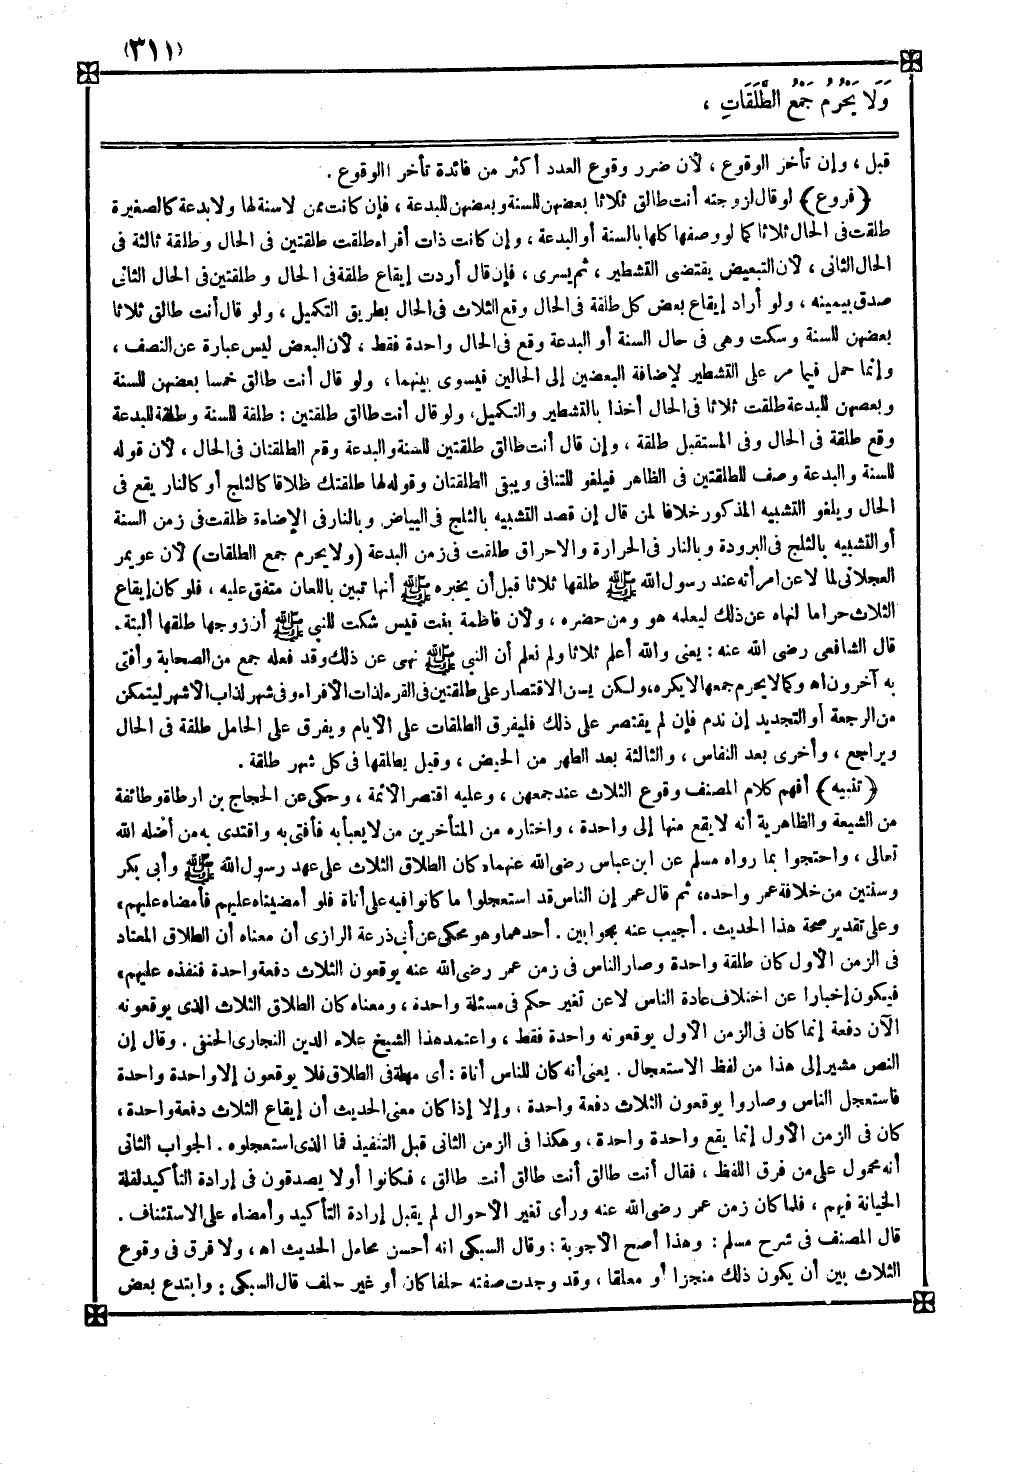 (٣١١)
وَلَا يَحْرُمُ جَمْعُ الطَّلَقَاتِ ،
قبل ، وإن تأخر الوقوع ، لأن ضرر وقوع العدد أكثر من فائدة تأخر االوقوع .
﴿فروع﴾ لو قال لزوجته أنت طالق ثلاثا بعضهن للسنة وبعضهن للبدعة ، فإن كانت ممن لا سنة لها ولا بدعة كالصغيرة
طلقت فى الحال ثلاثا كما لو وصفها كلها بالسنة أو البدعة ، وإن كانت ذات أقراء طلقت طلقتين فى الحال وطلقة ثالثة فى
الحال الثانى ، لأن التبعيض يقتضى التشطير ، ثم يسرى ، فإن قال أردت إيقاع طلقة فى الحال وطلقتين فى الحال الثانى
صدق بيمينه ، ولو أراد إيقاع بعض كل طلقة فى الحال وقع الثلاث فى الحال بطريق التكميل ، ولو قال أنت طالق ثلاثا
بعضهن للسنة وسكت وهى فى حال السنة أو البدعة وقع فى الحال واحدة فقط ، لأن البعض ليس عبارة عن النصف ،
وإنما حمل فيما مر على التشطير لإضافة البعضين إلى الحالين فيسوى بينهما ، ولو قال أنت طالق خمسا بعضهن للسنة
وبعضهن للبدعة طلقت ثلاثا فى الحال أخذا بالتشطير والتكميل، ولو قال أنت طالق طلقتين : طلقة للسنة وطلقة للبدعة
وقع طلقة فى الحال وفى المستقبل طلقة ، وإن قال أنت طالق طلقتين للسنة والبدعة وقع الطلقتان فى الحال ، لأن قوله
للسنة والبدعة وصف للطلقتين فى الظاهر فيلغو للتنافى ويبقى الطلقتان وقوله لها طلقتك طلاقا كالثلج أو كالنار يقع فى
الحال ويلغو التشبيه المذكور خلافا لمن قال إن قصد التشبيه بالثلج فى البياض وبالنار فى الإضاءة طلقت فى زمن السنة
أو التشبيه بالثلج فى البرودة وبالنار فى الحرارة والاحراق طلقت فى زمن البدعة (ولا يحرم جمع الطلقات) لأن عويمر
العجلانى لما لاعن امرأته عند رسول الله ﷺ طلقها ثلاثا قبل أن يخبره ﷺ أنها تبين باللعان متفق عليه ، فلو كان إيقاع
الثلاث حراما لنهاه عن ذلك ليعلمه هو ومن حضره ، ولأن فاطمة بنت قيس شكت للنبى ﷺ أن زوجها طلقها ألبتة .
قال الشافعى رضى الله عنه : يعنى والله أعلم ثلاثا ولم نعلم أن النبى ﷺ نهى عن ذلك وقد فعله جمع من الصحابة وأفتى
به آخرون اه وكما لا يحرم جمعها لا يكره، ولكن يسن الاقتصار على طلقتين فى القرء لذات الأقراء وفى شهر لذات الأشهر ليتمكن
من الرجعة أو التجديد إن ندم فإن لم يقتصر على ذلك فليفرق الطلقات على الأيام ويفرق على الحامل طلقة فى الحال
ويراجع ، وأخرى بعد النفاس ، والثالثة بعد الطهر من الحيض ، وقيل يطلقها فى كل شهر طلقة .
﴿تنبيه﴾ أفهم كلام المصنف وقوع الثلاث عند جمعهن ، وعليه اقتصر الأئمة ، وحكى عن الحجاج بن ارطاة وطائفة
من الشيعة والظاهرية أنه لا يقع منها إلى واحدة ، واختاره من المتأخرين من لا يعبأ به فأفتى به واقتدى به من أضله الله
تعالى ، واحتجوا بما رواه مسلم عن ابن عباس رضى الله عنهما، كان الطلاق الثلاث على عهد رسول الله ﷺ وأبى بكر
وسنتين من خلافة عمر واحده، ثم قال عمر إن الناس قد استعجلوا ما كانوا فيه على أناة فلو أمضيناه عليهم فأمضاه عليهم،
وعلى تقدير صحة هذا الحديث . أجيب عنه بجوابين . أحدهما وهو محكى عن أبى ذرعة الرازى أن معناه أن الطلاق المعتاد
فى الزمن الأول كان طلقة واحدة وصار الناس فى زمن عمر رضى الله عنه يوقعون الثلاث دفعة واحدة فنفذه عليهم،
فيكون إخبارا عن اختلاف عادة الناس لا عن تغير حكم فى مسئلة واحدة ، ومعناه كان الطلاق الثلاث الذى يوقعونه
الآن دفعة إنما كان فى الزمن الأول يوقعونه واحدة فقط ، واعتمد هذا الشيخ علاء الدين النجارى الحنفى . وقال إن
النص مشير إلى هذا من لفظ الاستعجال . يعنى أنه كان للناس أناة : أى مهلة فى الطلاق فلا يوقعون إلا واحدة واحدة
فاستعجل الناس وصاروا يوقعون الثلاث دفعة واحدة ، وإلا إذا كان معنى الحديث أن إيقاع الثلاث دفعة واحدة ،
كان فى الزمن الأول إنما يقع واحدة واحدة ، وهكذا فى الزمن الثانى قبل التنفيذ فما الذى استعجلوه . الجواب الثانى
أنه محمول على من فرق اللفظ ، فقال أنت طالق أنت طالق أنت طالق ، فكانوا أولا يصدقون فى إرادة التأكيد لقلة
الخيانة فيهم ، فلما كان زمن عمر رضى الله عنه ورأى تغير الأحوال لم يقبل إرادة التأكيد وأمضاه على الاستئناف .
قال المصنف فى شرح مسلم : وهذا أصح الأجوبة : وقال السبكى انه أحسن محامل الحديث اه ، ولا فرق فى وقوع
الثلاث بين أن يكون ذلك منجزا أو معلقا ، وقد وجدت صفته حلفا كان أو غير حلف قال السبكى : وابتدع بعض